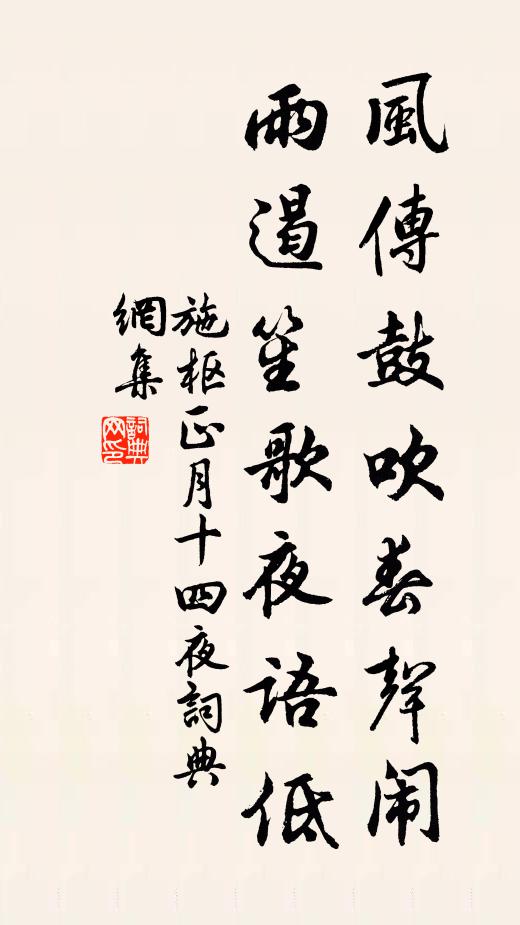 風傳鼓吹春聲闹
雨遏笙歌夜語低
施枢正月十四夜詞典
網集
詞典
网印